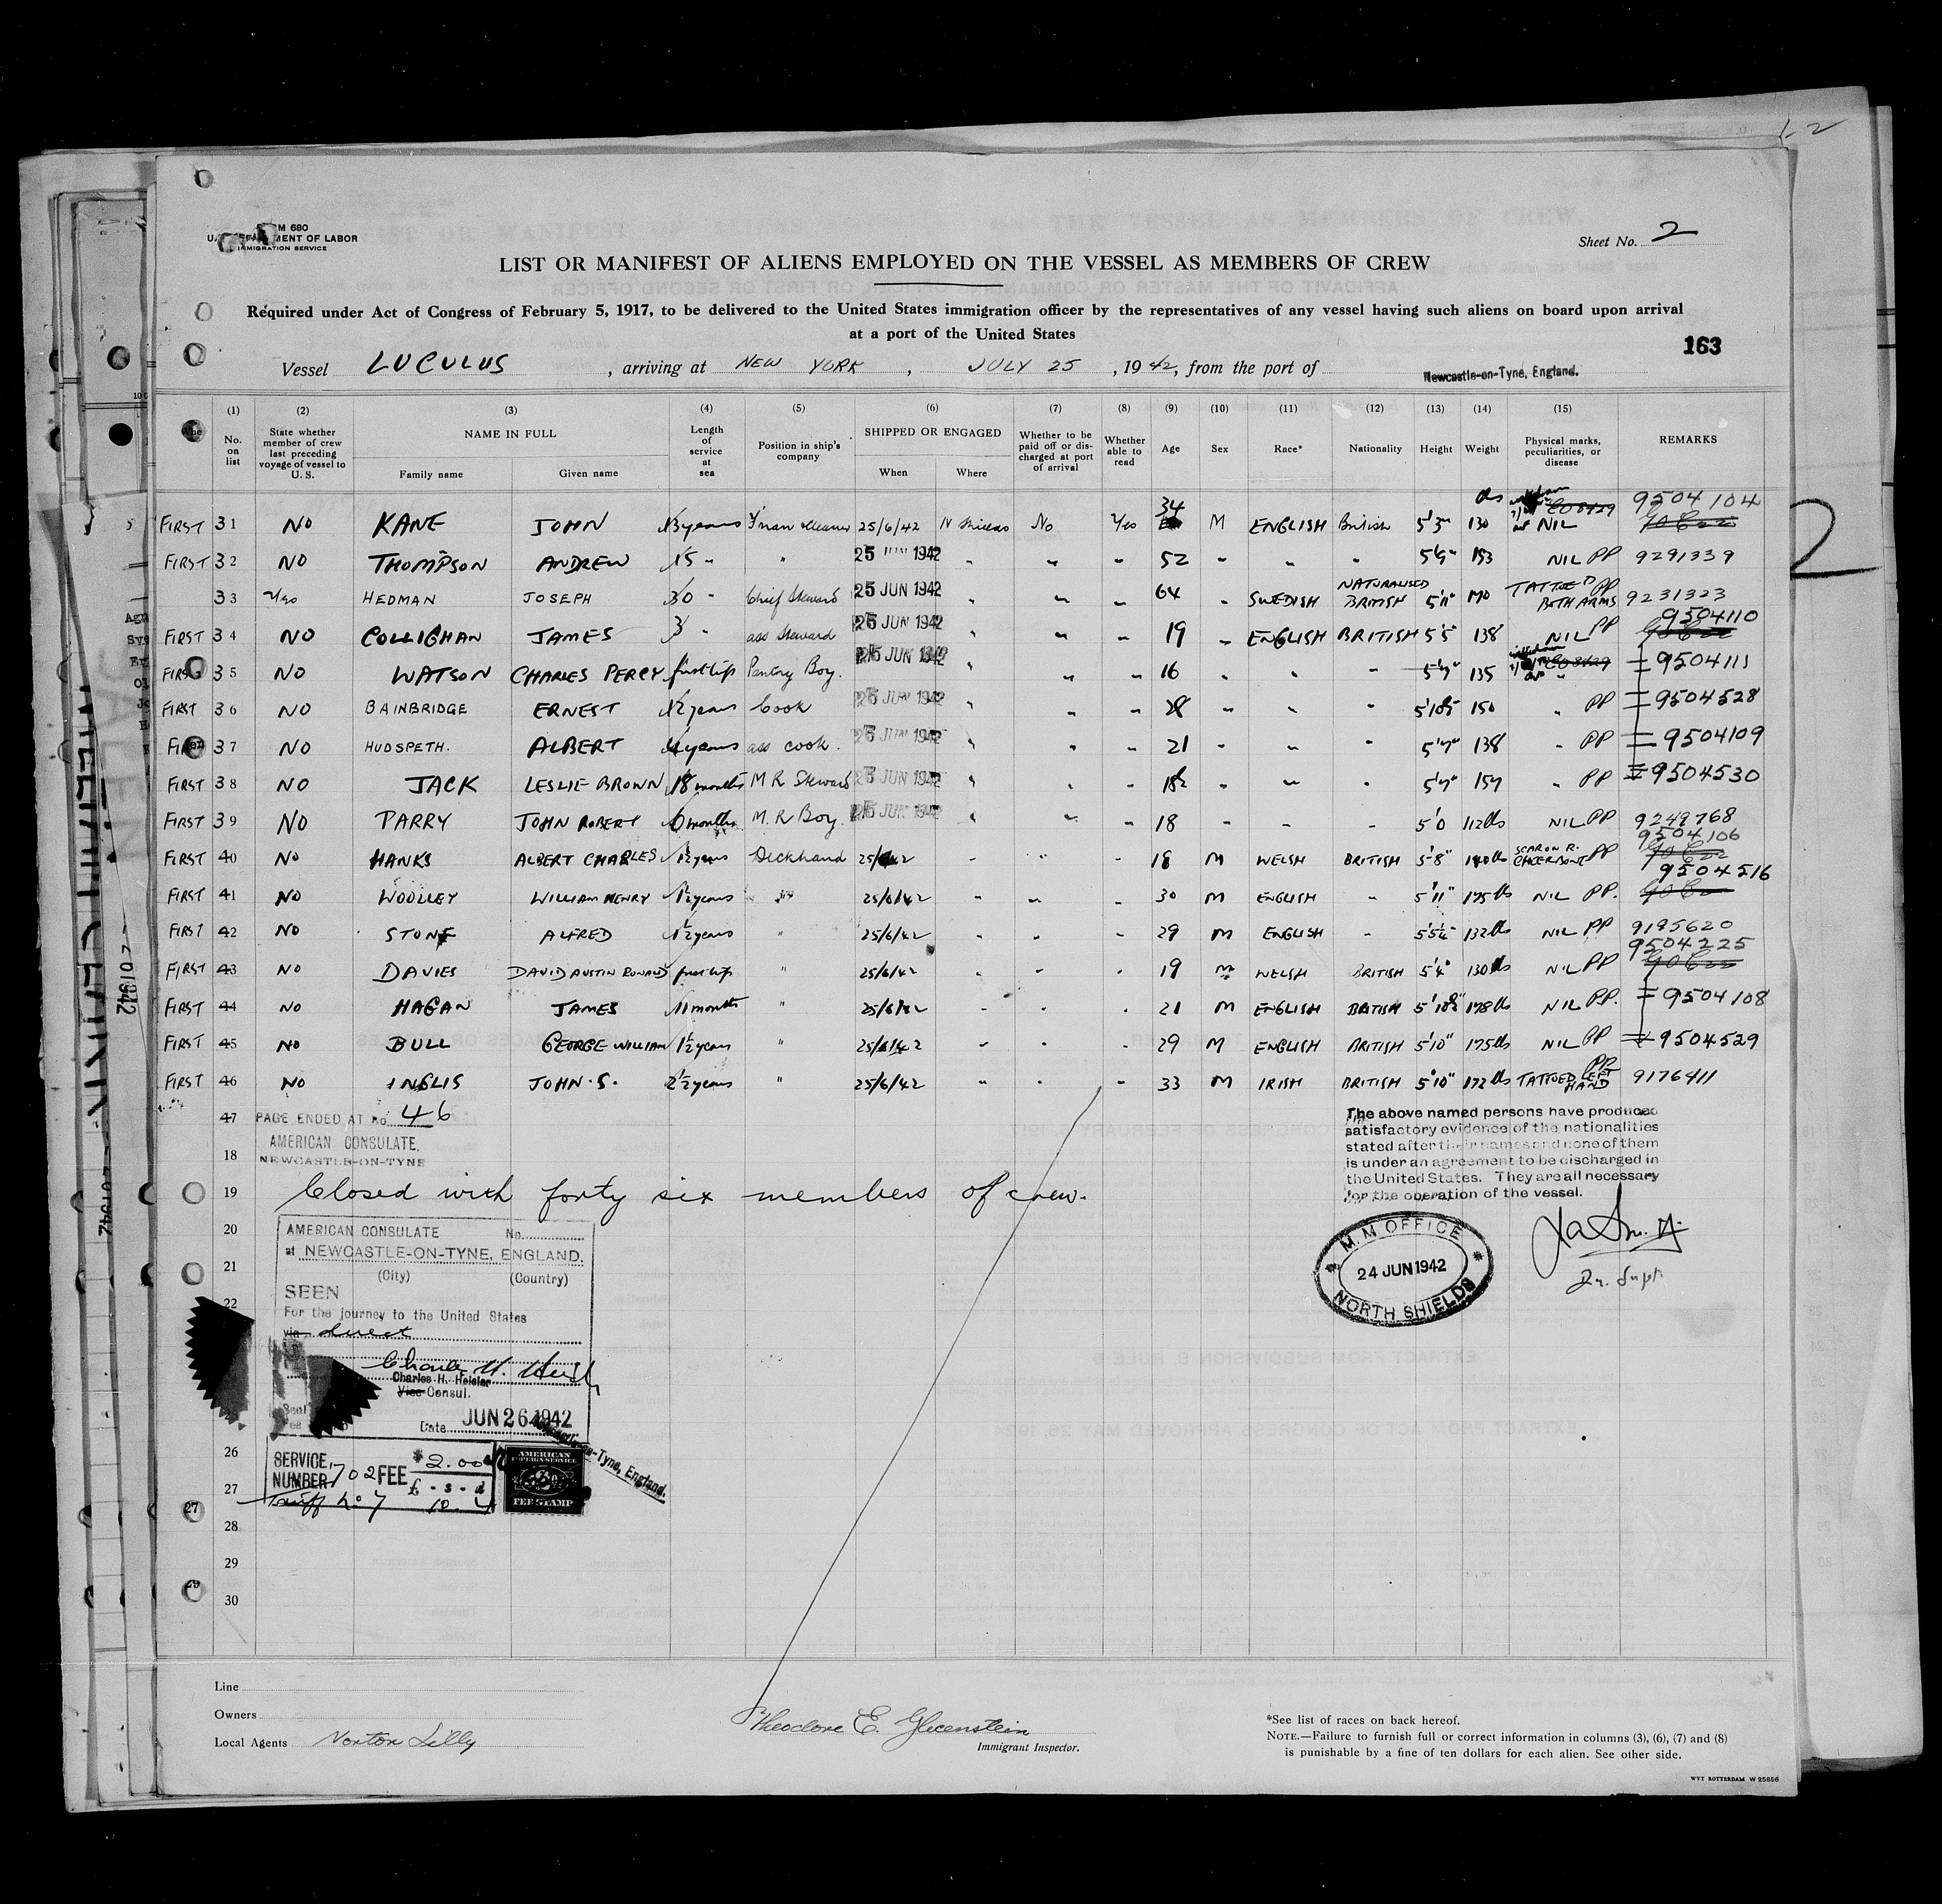 1-2
FORM 680
U.S. DEPARTMENT OF LABOR
IMMIGRATION SERVICE
Sheet No. 2
LIST OR MANIFEST OF ALIENS EMPLOYED ON THE VESSEL AS MEMBERS OF CREW
Required under Act of Congress of February 5, 1917, to be delivered to the United States immigration officer by the representatives of any vessel having such aliens on board upon arrival
at a port of the United States
163
Vessel LUCULUS, arriving at NEW YORK, JULY 25, 1942, from the port of Newcastle-on-Tyne, England.
(1) (2) (3) (4) (5) (6) (7) (8) (9) (10) (11) (12) (13) (14) (15)
No. on list
State whether member of crew last preceding voyage of vessel to U. S.
NAME IN FULL
Family name
Given name
Length of service at sea
Position in ship's company
SHIPPED OR ENGAGED
When
Where
Whether to be paid off or discharged at port of arrival
Whether able to read
Age
Sex
Race*
Nationality
Height
Weight
Physical marks, peculiarities, or disease
REMARKS
FIRST 31 NO KANE JOHN 13 years 25/6/42 N Shields No Yes 34 M ENGLISH British 5'3" 130 NIL 9504104
FIRST 32 NO THOMPSON ANDREW 15 " " 25 JUN 1942 " " " 52 " " " 5'9" 153 NIL PP 9291339
33 Yes HEDMAN JOSEPH 30 " Chief Steward 25 JUN 1942 " " 64 " SWEDISH NATURALISED BRITISH 5'11" 170 TATTOE'D BOTH ARMS PP 9231323
FIRST 34 NO COLLIGHAN JAMES 3 " ass Steward 25 JUN 1942 " " " 19 " ENGLISH BRITISH 5'5 138 NIL PP 9504110
FIRST 35 NO WATSON CHARLES PERCY first trip Pantry Boy. 25 JUN 1942 " " " 16 " " " 5'7" 135 " 9504111
FIRST 36 NO BAINBRIDGE ERNEST 12 years Cook 25 JUN 1942 " " " 28 " " " 150 " PP 9504528
FIRST 37 NO HUDSPETH. ALBERT 4 years ass cook. 25 JUN 1942 " " " 21 " " " 5'7" 138 " PP 9504109
FIRST 38 NO JACK LESLIE BROWN 18 months M R Steward 25 JUN 1942 " " " 18½ " " " 5'7" 157 " PP 9504530
FIRST 39 NO PARRY JOHN ROBERT 6 months M. R Boy 25 JUN 1942 " " " 18 - - - 5'0 112lbs NIL PP 9249768
FIRST 40 NO HANKS ALBERT CHARLES 1½ years Deckhand 25/6/42 - " - 18 M WELSH BRITISH 5'8" 140lbs SCAR ON R. PP 9504106
FIRST 41 NO WOOLLEY WILLIAM HENRY 1½ years " 25/6/42 - " - 30 M ENGLISH " 5'11" 175lbs NIL PP. 9504516
FIRST 42 NO STONE ALFRED 1½ years " 25/6/42 - " - 29 M ENGLISH - 132lbs NIL PP 9195620
FIRST 43 NO DAVIES DAVID AUSTIN RONALD first trip " 25/6/42 - - - 19 M WELSH BRITISH 5'4" 130lbs NIL PP 9504225
FIRST 44 NO HAGAN JAMES 11 months " 25/6/42 - - - 21 M ENGLISH BRITISH 5'10½" 178lbs NIL PP. 9504108
FIRST 45 NO BULL GEORGE WILLIAM 1½ years " 25/6/42 - - - 29 M ENGLISH BRITISH 5'10" 175lbs NIL PP 9504529
FIRST 46 NO INGLIS JOHN·S. 2½ years " 25/6/42 " - " 33 M IRISH BRITISH 5'10" 172lbs TATTOED LEFT HAND PP 9176411
47 PAGE ENDED AT No. 46
AMERICAN CONSULATE,
18 NEWCASTLE-ON-TYNE
The above named persons have produced
satisfactory evidence of the nationalities
stated after their names and none of them
is under an agreement to be discharged in
the United States. They are all necessary
for the operation of the vessel.
19 Closed with forty six members of crew.
20 AMERICAN CONSULATE No.
at NEWCASTLE-ON-TYNE, ENGLAND.
21 (City) (Country)
SEEN
22 For the journey to the United States
via direct
Charles H. Heisler
Vice Consul.
Seal
Date JUN 26 1942
M. M OFFICE
24 JUN 1942
NORTH SHIELDS
26 SERVICE NUMBER 702 FEE $2.00
£ - s - d
27 Tariff No 7 10.
AMERICAN FOREIGN SERVICE
FEE STAMP
Newcastle-on-Tyne, England.
27
28
29
29
30
Line
Owners
Local Agents Norton Lilly
Theodore E. Glicenstein
Immigrant Inspector.
*See list of races on back hereof.
NOTE.—Failure to furnish full or correct information in columns (3), (6), (7) and (8)
is punishable by a fine of ten dollars for each alien. See other side.
WYT ROTTERDAM W 25856
2